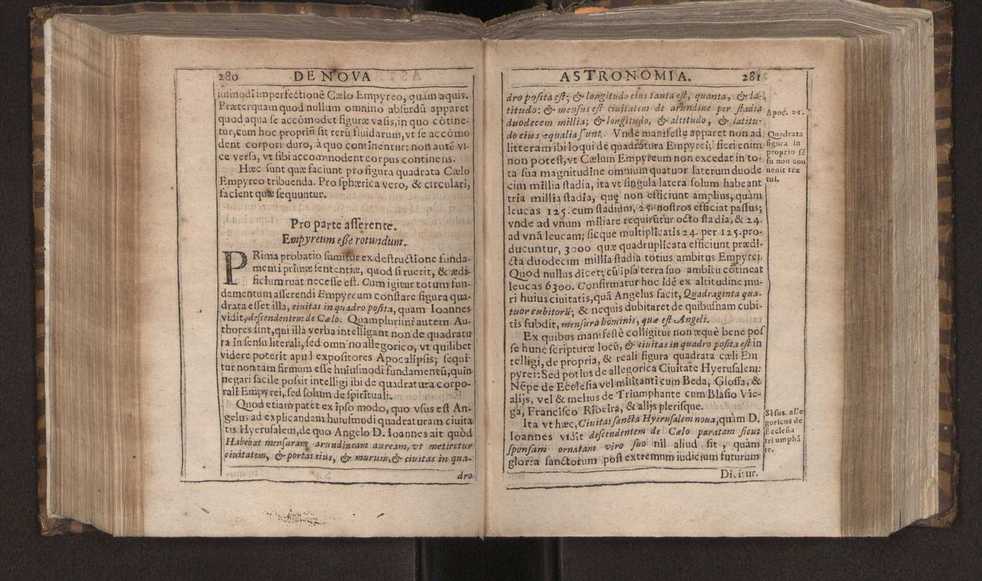 280 DE NOVA
iusmodi imperfectione Cælo Empyreo, quàm aquis.
Præterquam quod nullum omnino absurdũ apparet
quod aqua se accõmodet figuræ vasis, in quo cõtine-
tur, cum hoc propriũ sit rerũ fluidarum, vt se accõmo
dent corpori duro, à quo continentur: non autē vi-
ce versa, vt sibi accommodent corpus continens.
Hæc sunt quæ faciunt pro figura quadrata Cælo
Empyreo tribuenda. Pro sphærica vero, & circulari,
facient quæ sequuntur.
Pro parte asserente.
Empyreum esse rotundum.
PRima probatio sumitur ex destructione funda-
menti primæ sententiæ, quod si ruerit, & ædi-
ficium ruat necesse est. Cum igitur totum fun-
damentum asserendi Empyreum constare figura qua-
drata esset illa, ciuitas in quadro posita, quam Ioannes
vidit, descendentem de Cælo. Quamplurimi autem Au-
thores sint, qui illa verba intelligant non de quadratu
ra in sensu literali, sed omnino allegorico, vt quilibet
videre poterit apud expositores Apocalipsis; sequi-
tur non tam firmum esse huiusmodi fundamentũ, quin
negari facile possit intelligi ibi de quadratura corpo-
rali Empyrei, sed solum de spirituali.
Quod etiam patet ex ipso modo, quo vsus est An-
gelus ad explicandam huiusmodi quadraturam ciuita
tis Hyerusalem, de quo Angelo D. Ioannes ait quòd
Habebat mensuram arundineam auream, vt metiretur
ciuitatem, & portas eius, & murum, & ciuitas in qua-
dro
ASTRONOMIA. 281
dro posita est; & longitudo eius tanta est, quanta, & la-
titudo: & mensus est ciuitatem de arundine per stadia
duodecem millia; & longitudo, & altitudo, & latitu-
do eius æqualia sunt. Vnde manifestè apparet non ad
litteram ibi loqui de quadratura Empyrei, fieri enim
non potest, vt Cælum Empyreum non excedat in to-
ta sua magnitudine omnium quatuor laterum duode
cim millia stadia, ita vt singula latera solum habeant
tria millia stadia, quę non efficiunt amplius, quàm
leucas 125. cum stadium, 25. nostros efficiat passus;
vnde ad vnum miliare requirũtur octo stadia, & 24.
ad vnã leucam; sicque multiplicatis 24. per 125. pro-
ducuntur, 3000 quæ quadruplicata efficiunt prædi-
cta duodecim millia stadia totius ambitus Empyrei.
Quod nullus dicet; cũ ipsa terra suo ambitu cõtineat
leucas 6300. Confirmatur hoc idē ex altitudine mu-
ri huius ciuitatis, quã Angelus facit, Quadraginta qua-
tuor cubitorũ; & nequis dubitaret de quibusnam cubi-
tis subdit, mensura hominis, quæ est Angeli.
Ex quibus manifestè colligitur non æquè bene pos
se hunc scripturæ locũ, & ciuitas in quadro posita est in
telligi, de propria, & reali figura quadrata cæli Em
pyrei: Sed potius de allegorica Ciuitate Hyerusalem:
Nēpe de Ecclesia vel militanti cum Beda, Glossa, &
alijs, vel & melius de Triumphante cum Blasio Vie-
ga, Francisco Ribeira, & alijs plerisque.
Ita vt hæc, Ciuitas sancta Hyerusalem noua, quàm D.
Ioannes vidit descendentem de Cælo paratam sicut
sponsam ornatam viro suo nil aliud sit, quàm
gloria sanctorum post extremum iudicium futurum
Dicitur.
Apoc. 21.
Quadrata
figura in
proprio sē
su non con
uenit cæ
lis.
Sēsus alle
goricus de
Ecclesia
triumphã
te.